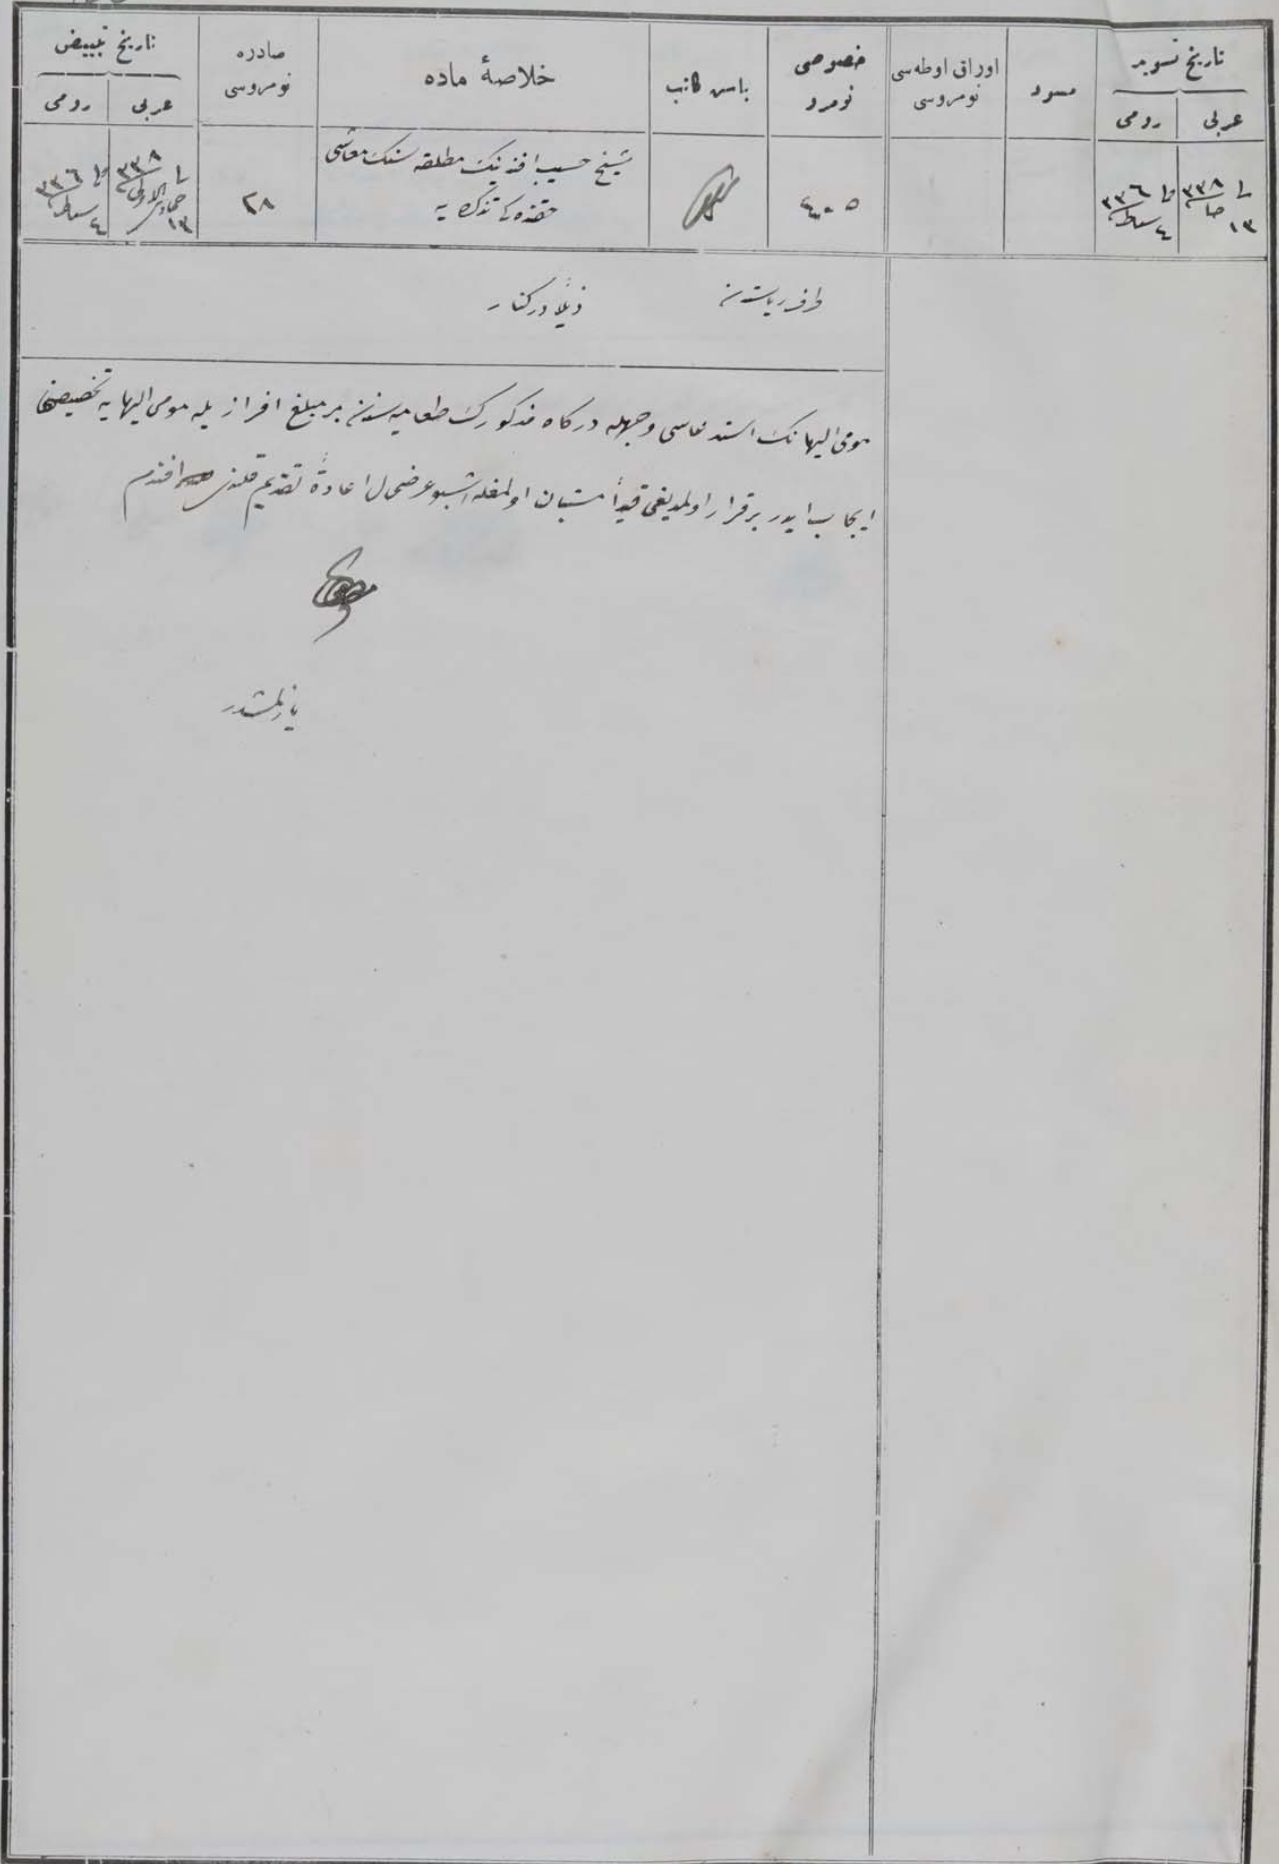 تاریخ تسوید
عربی
رومی
مسود
اوراق اوطه‌سی
نومروسی
خصوصی
نومرو
باش كاتب
خلاصهٔ ماده
صادره
نومروسی
تاریخ تبییض
عربی
رومی
١٣ جا ٣٣٨
٤ شباط ٣٣٦
٤٠٠٥
شیخ حسیب افندینك مطلقه سنك معاشی
حقنده كی تذكره یه
٢٨
١٣ جمادی الاولی ٣٣٨
٤ شباط ٣٣٦
طرف ریاستدن
ذیلاً دركنار
مومی الیهانك استدعاسی وجهله دركاه مذكورك طعامیه سندن بر مبلغ افرازیله مومی الیهایه تخصیصی
ایجاب ایدر برقرار اولمدیغی قیداً مستبان اولمغله اشبو عرضحال اعادةً تقدیم قلندی افندم
یازلمشدر